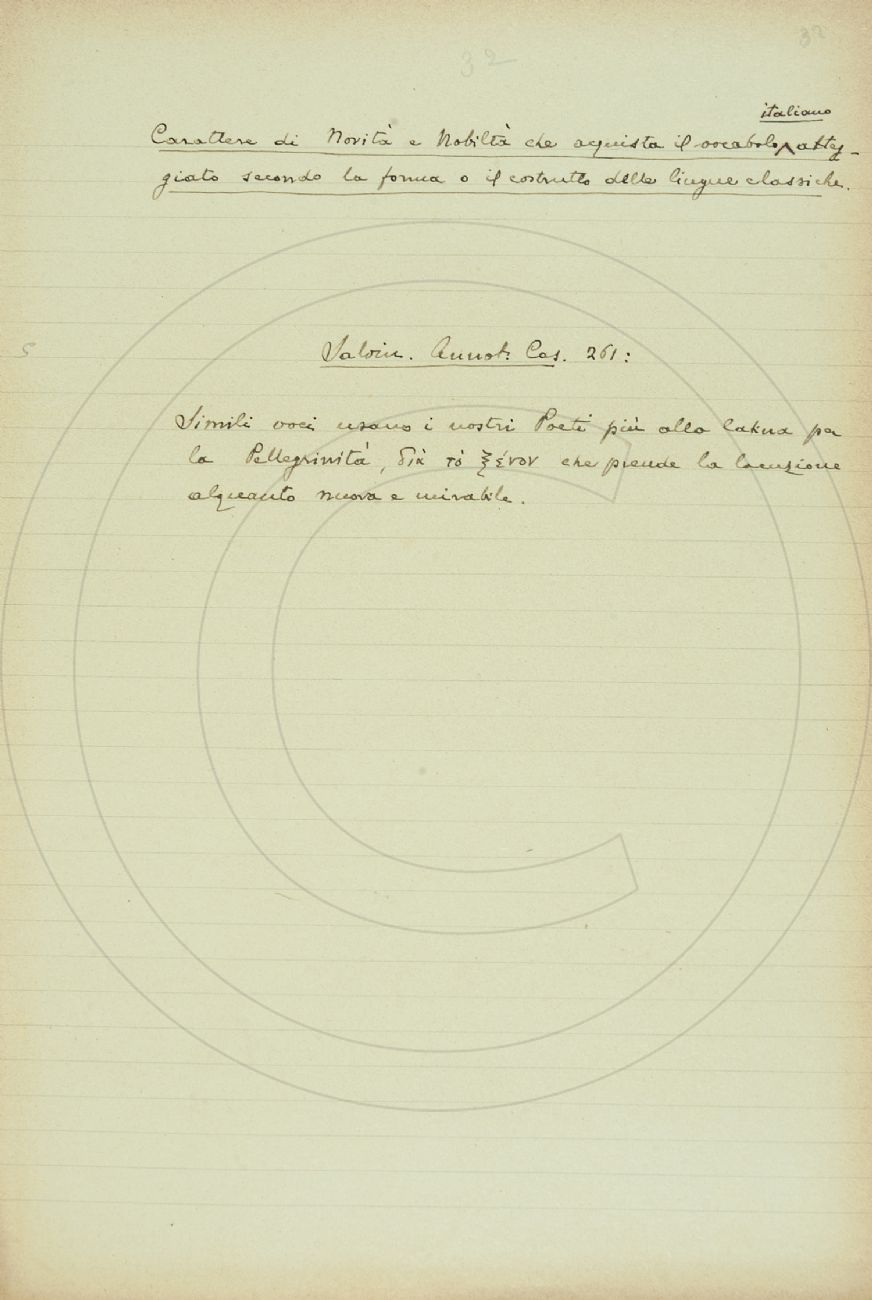 32 32
italiano
Carattere di Novità e Nobiltà che acquista il vocabolo atteg-
giato secondo la forma o il costrutto delle lingue classiche.
Salvin. Annot. Cas. 261:
Simili voci usano i nostri Poeti più alla latina per
la Pellegrinità, διὰ τὸ ξένον che prende la locuzione
alquanto nuova e mirabile.